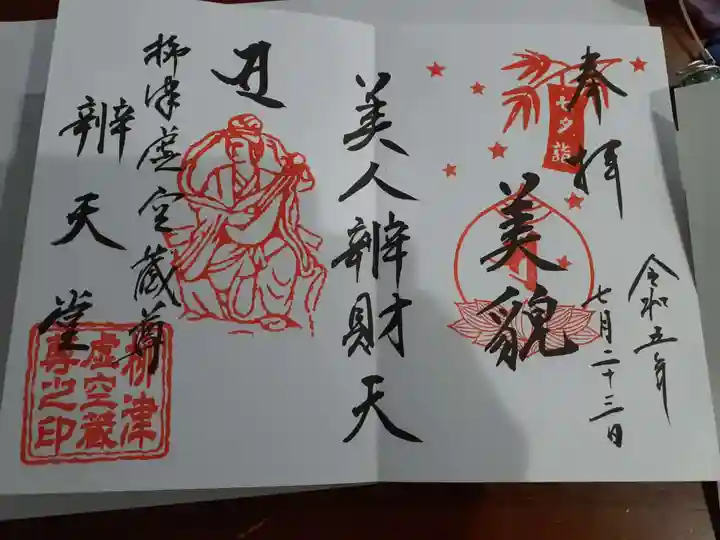 奉拝
七夕詣
令和五年
七月二十三日
美貌
美人辨財天
丑
柳津虚空蔵尊
辨天堂
柳津
虚空蔵
尊之印